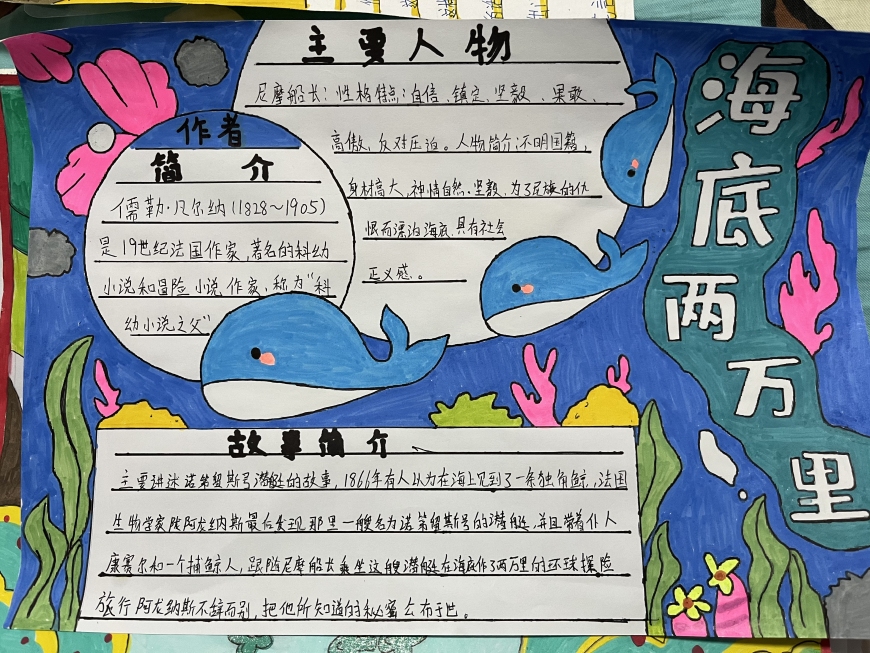 海底两万里
主要人物
尼摩船长：性格特点：自信、镇定、坚毅、果敢、
高傲、反对压迫。人物简介：不明国籍，
身材高大，神情自然、坚毅，为了民族的仇
恨而漂泊海底，具有社会
正义感。
作者
简介
儒勒·凡尔纳（1828～1905）
是19世纪法国作家，著名的科幼
小说和冒险小说作家，称为“科
幼小说之父”
故事简介
主要讲述诺第留斯号潜艇的故事，1866年有人以为在海上见到了一条独角鲸，法国
生物学家阿龙纳斯最后发现那里一艘名为诺第留斯号的潜艇，并且带着仆人
康赛尔和一个捕鲸人，跟随尼摩船长乘坐这艘潜艇在海底作了两万里的环球探险
旅行阿龙纳斯不辞而别，把他所知道的秘密公布于世。